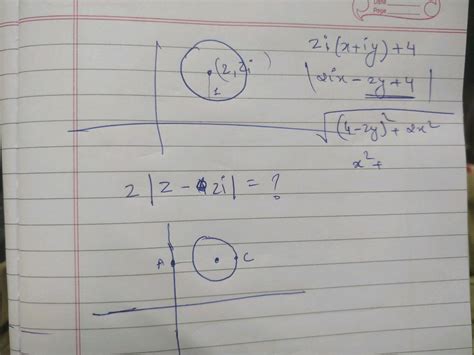 Date
Page
(2, 2i)
1
2i(x+iy)+4
|2ix - 2y + 4|
√(4-2y)² + 2x²
x² +
2|z - 2i| = ?
A
C